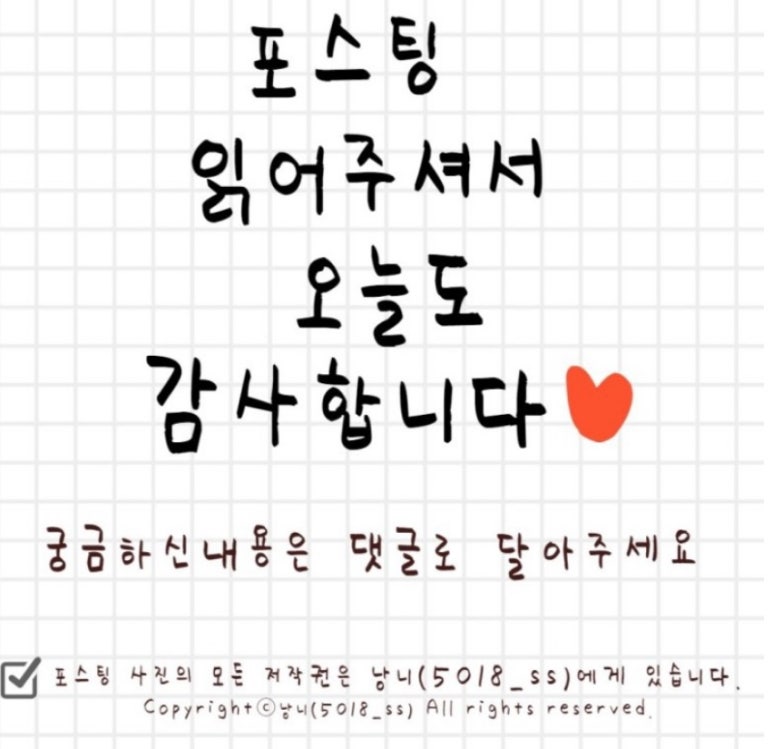 포스팅
읽어주셔서
오늘도
감사합니다
궁금하신내용은 댓글로 달아주세요
포스팅 사진의 모든 저작권은 낭니(5018_ss)에게 있습니다.
Copyrightⓒ낭니(5018_ss) All rights reserved.